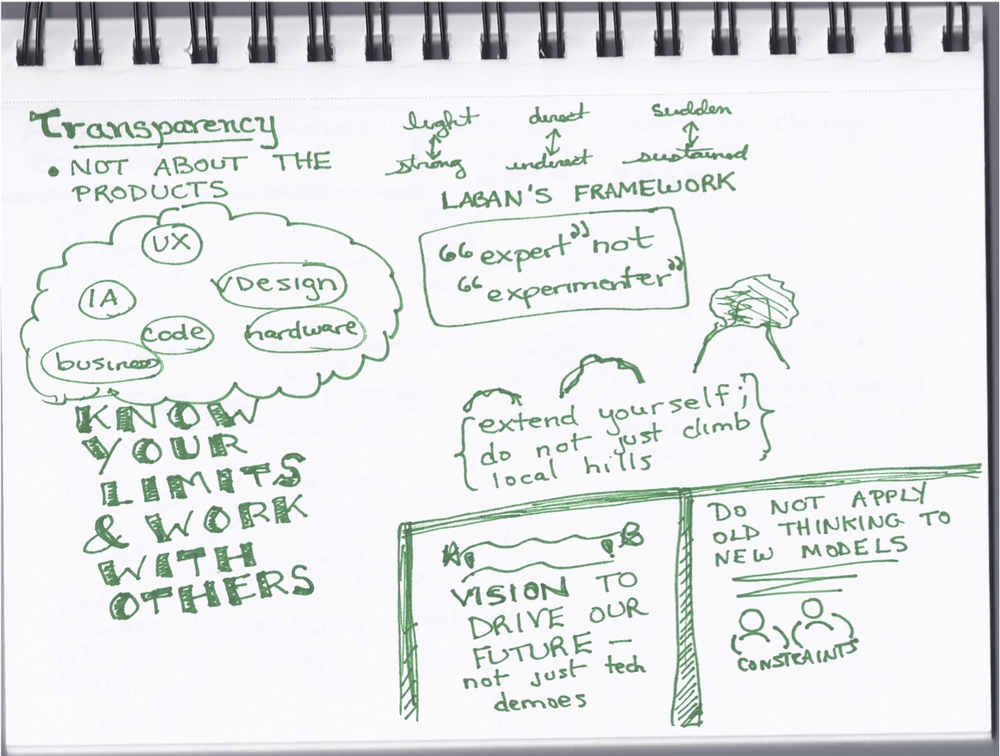 Transparency
• NOT ABOUT THE
PRODUCTS
UX
IA
VDesign
code
hardware
business
KNOW
YOUR
LIMITS
& WORK
WITH
OTHERS
light
strong
direct
indirect
sudden
sustained
LABAN'S FRAMEWORK
“expert” not
“experimenter”
extend yourself;
do not just climb
local hills
A
B
VISION TO
DRIVE OUR
FUTURE —
not just tech
demoes
DO NOT APPLY
OLD THINKING TO
NEW MODELS
CONSTRAINTS